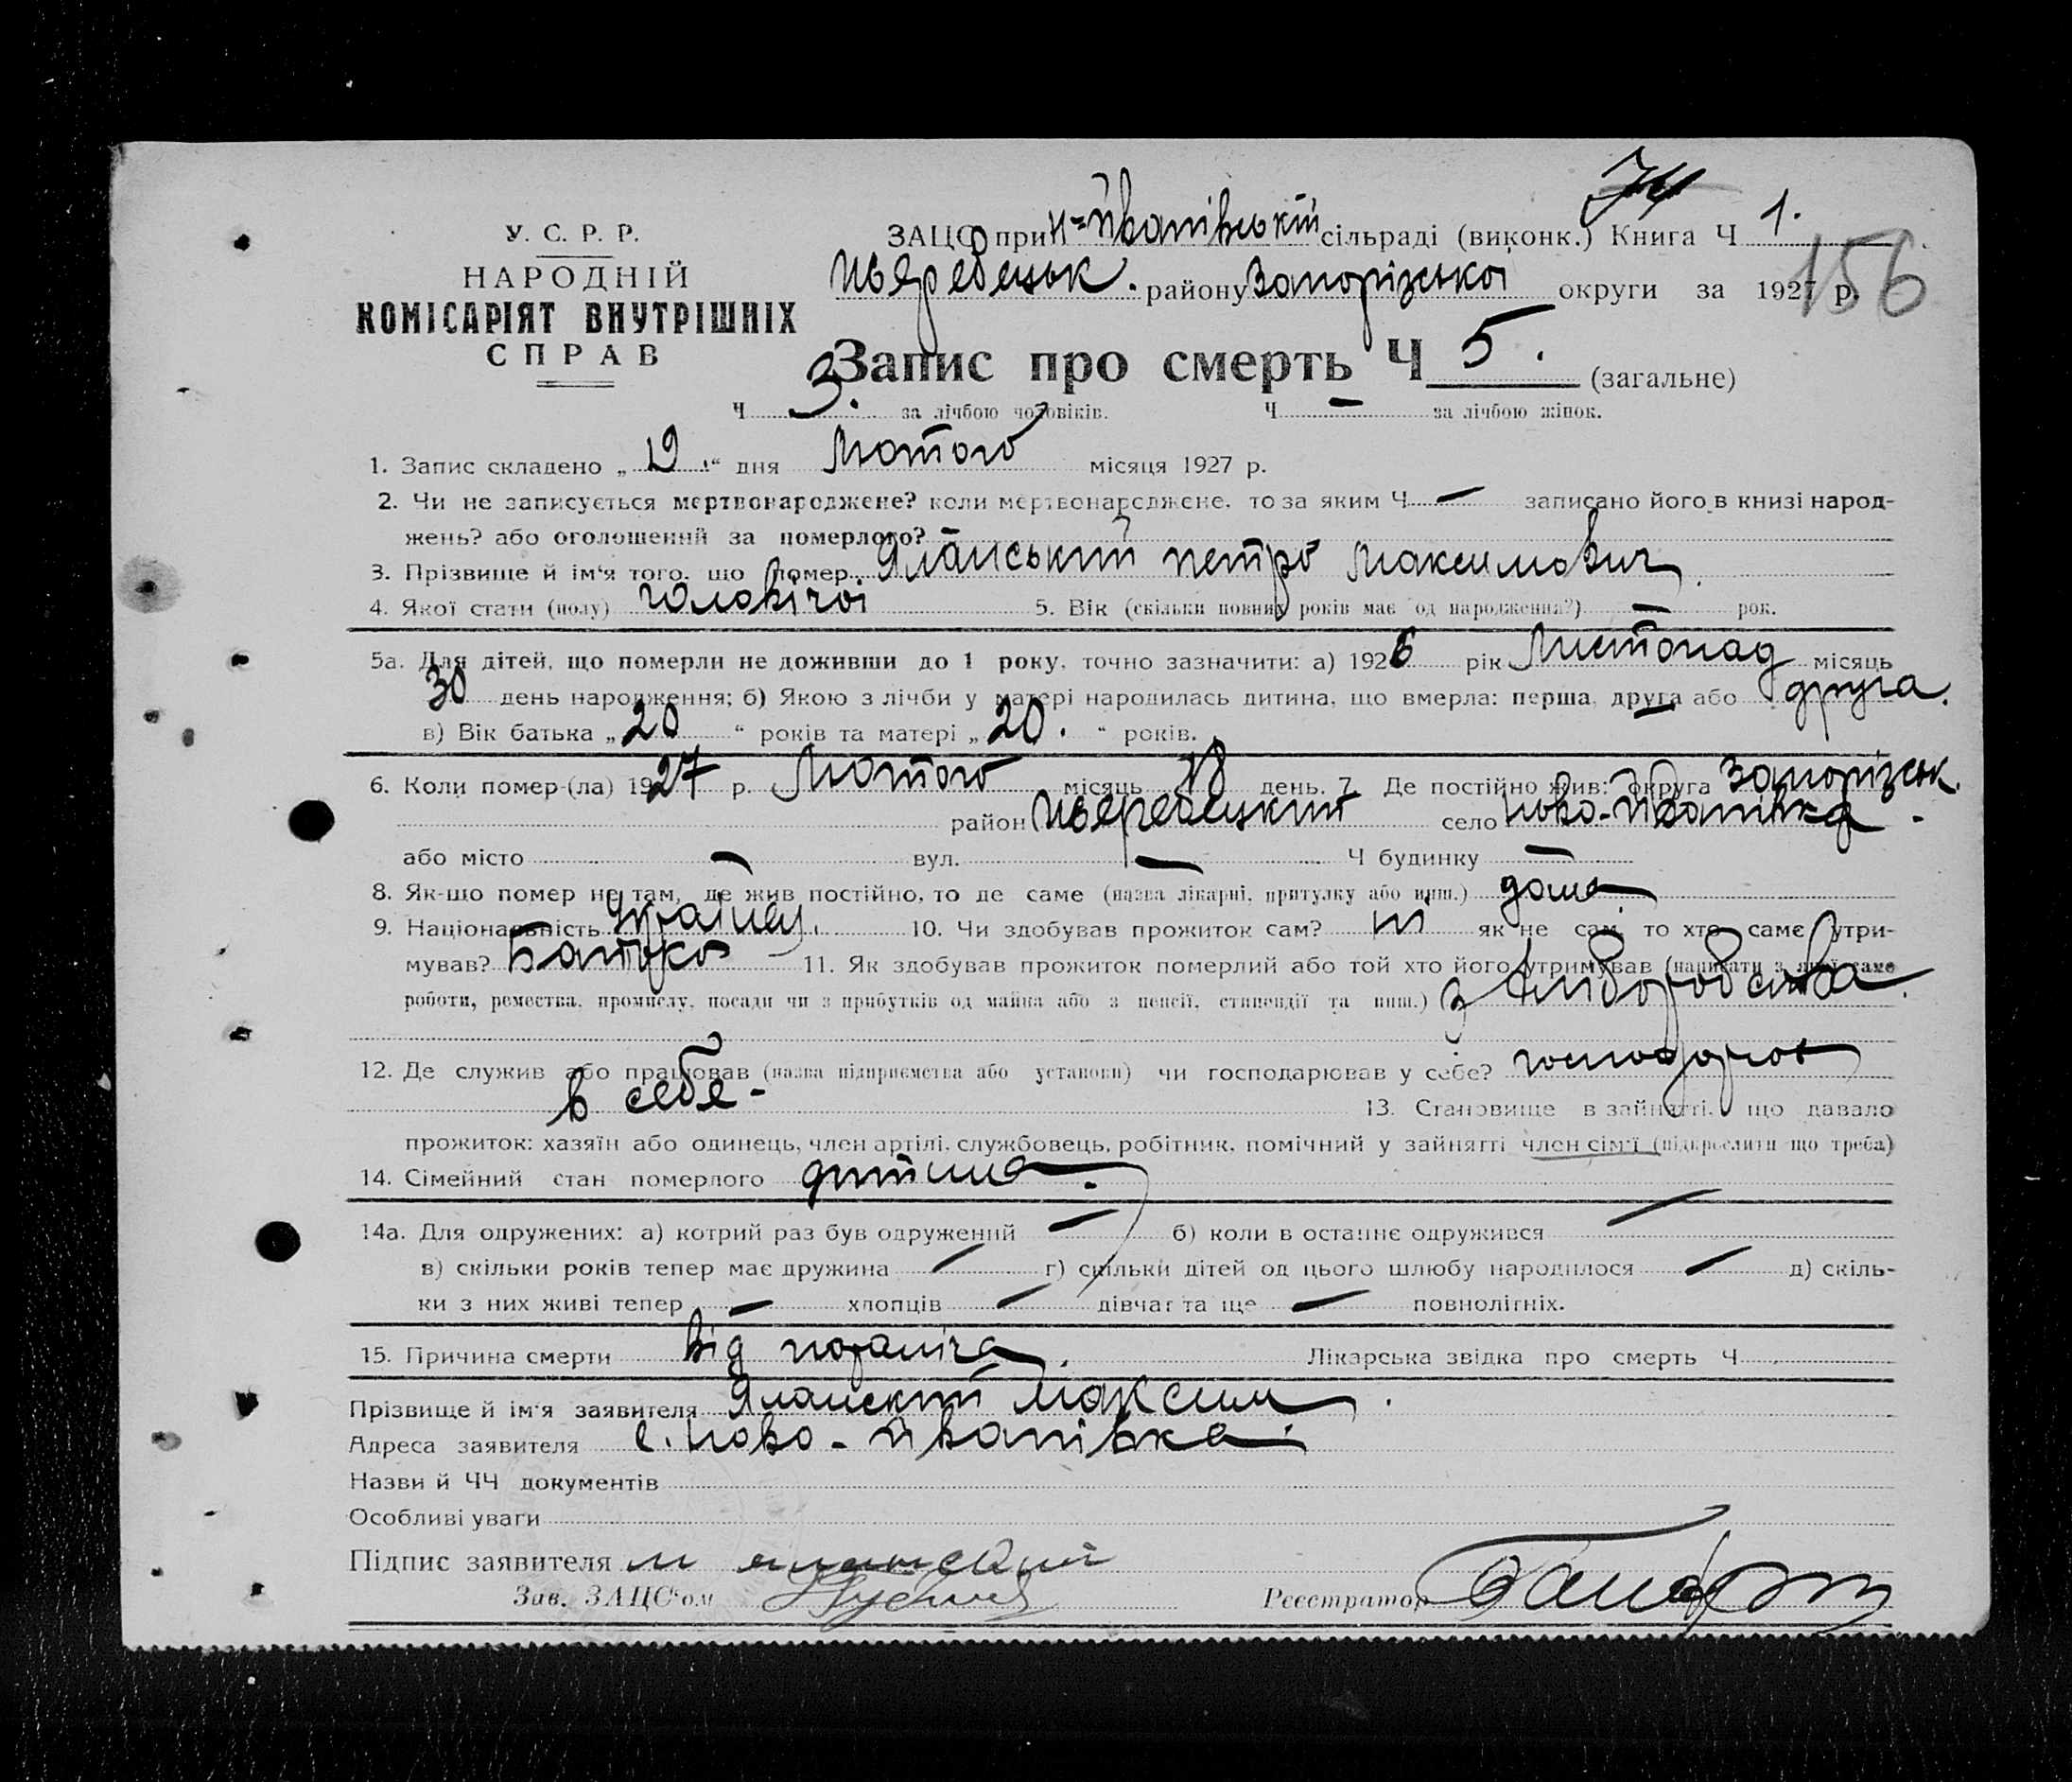 74
У. С. Р. Р.
НАРОДНІЙ
КОМІСАРІЯТ ВНУТРІШНІХ
СПРАВ
ЗАЦС при Н-Йванівській сільраді (виконк.) Книга Ч 1.
району Запорізької округи за 1927 р.
156
Запис про смерть Ч 5. (загальне)
Ч 3. за лічбою чоловіків. Ч — за лічбою жінок.
1. Запис складено „19“ дня Лютого місяця 1927 р.
2. Чи не записується мертвонароджене? коли мертвонароджене, то за яким Ч — записано його в книзі народ-
жень? або оголошений за померлого?
3. Прізвище й ім'я того, що помер Яланський Петро Максимович.
4. Якої стати (полу) чоловічої 5. Вік (скільки повних років має од народження?) — рок.
5а. Для дітей, що померли не доживши до 1 року, точно зазначити: а) 1926 рік Листопад місяць
30 день народження; б) Якою з лічби у матері народилась дитина, що вмерла: перша, друга або друга.
в) Вік батька „20“ років та матері „20.“ років.
6. Коли помер-(ла) 1927 р. Лютого місяць 18 день. 7. Де постійно жив: округа Запорізськ.
район село Ново-Йванівка.
або місто — вул. — Ч будинку —
8. Як-що помер не там, де жив постійно, то де саме (назва лікарні, притулку або инш.) дома.
9. Національність Українец. 10. Чи здобував прожиток сам? ні як не сам, то хто саме утри-
мував? Батько 11. Як здобував прожиток померлий або той хто його утримував (написати з якої саме
роботи, ремества, промислу, посади чи з прибутків од майна або з пенсії, стипендії та инш.) з хліборобства.
12. Де служив або працював (назва підприємства або установи) чи господарював у себе? господарював
в себе - 13. Становище в зайнятті, що давало
прожиток: хазяїн або одинець, член артілі, службовець, робітник, помічний у зайнятті член сім'ї (підкреслити що треба)
14. Сімейний стан померлого дитина.
14а. Для одружених: а) котрий раз був одружений — б) коли в останнє одружився —
в) скільки років тепер має дружина — г) скільки дітей од цього шлюбу народилося — д) скіль-
ки з них живі тепер — хлопців — дівчат та ще — повнолітніх.
15. Причина смерти від Лікарська звідка про смерть Ч
Прізвище й ім'я заявителя Яланский Максим.
Адреса заявителя с. Ново-Йванівка.
Назви й ЧЧ документів
Особливі уваги
Підпис заявителя М Яланский
Зав. ЗАЦС'ом
Реєстратор